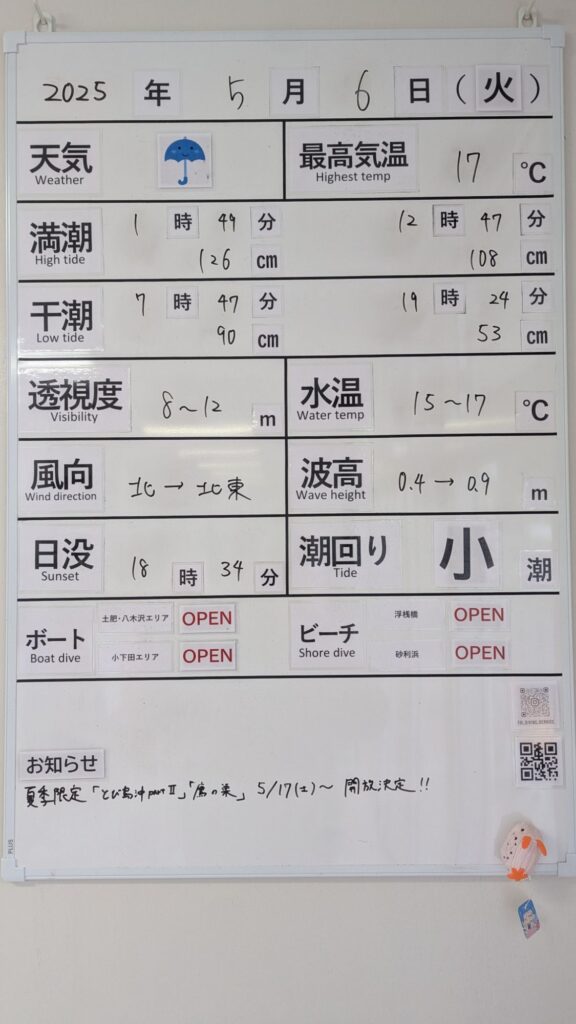 2025 年 5 月 6 日 (火)
天気 最高気温 17 ℃
Weather Highest temp
満潮 1 時 49 分 12 時 47 分
High tide 126 cm 108 cm
干潮 7 時 47 分 19 時 24 分
Low tide 90 cm 53 cm
透視度 8~12 m 水温 15~17 ℃
Visibility Water temp
風向 北→北東 波高 0.4→0.9 m
Wind direction Wave height
日没 18 時 34 分 潮回り 小 潮
Sunset Tide
ボート 土肥・八木沢エリア OPEN ビーチ 浮桟橋 OPEN
Boat dive 小下田エリア OPEN Shore dive 砂利浜 OPEN
お知らせ
夏季限定「とび島沖partⅡ」「鳥の巣」 5/17(土)~ 開放決定!!
PLUS